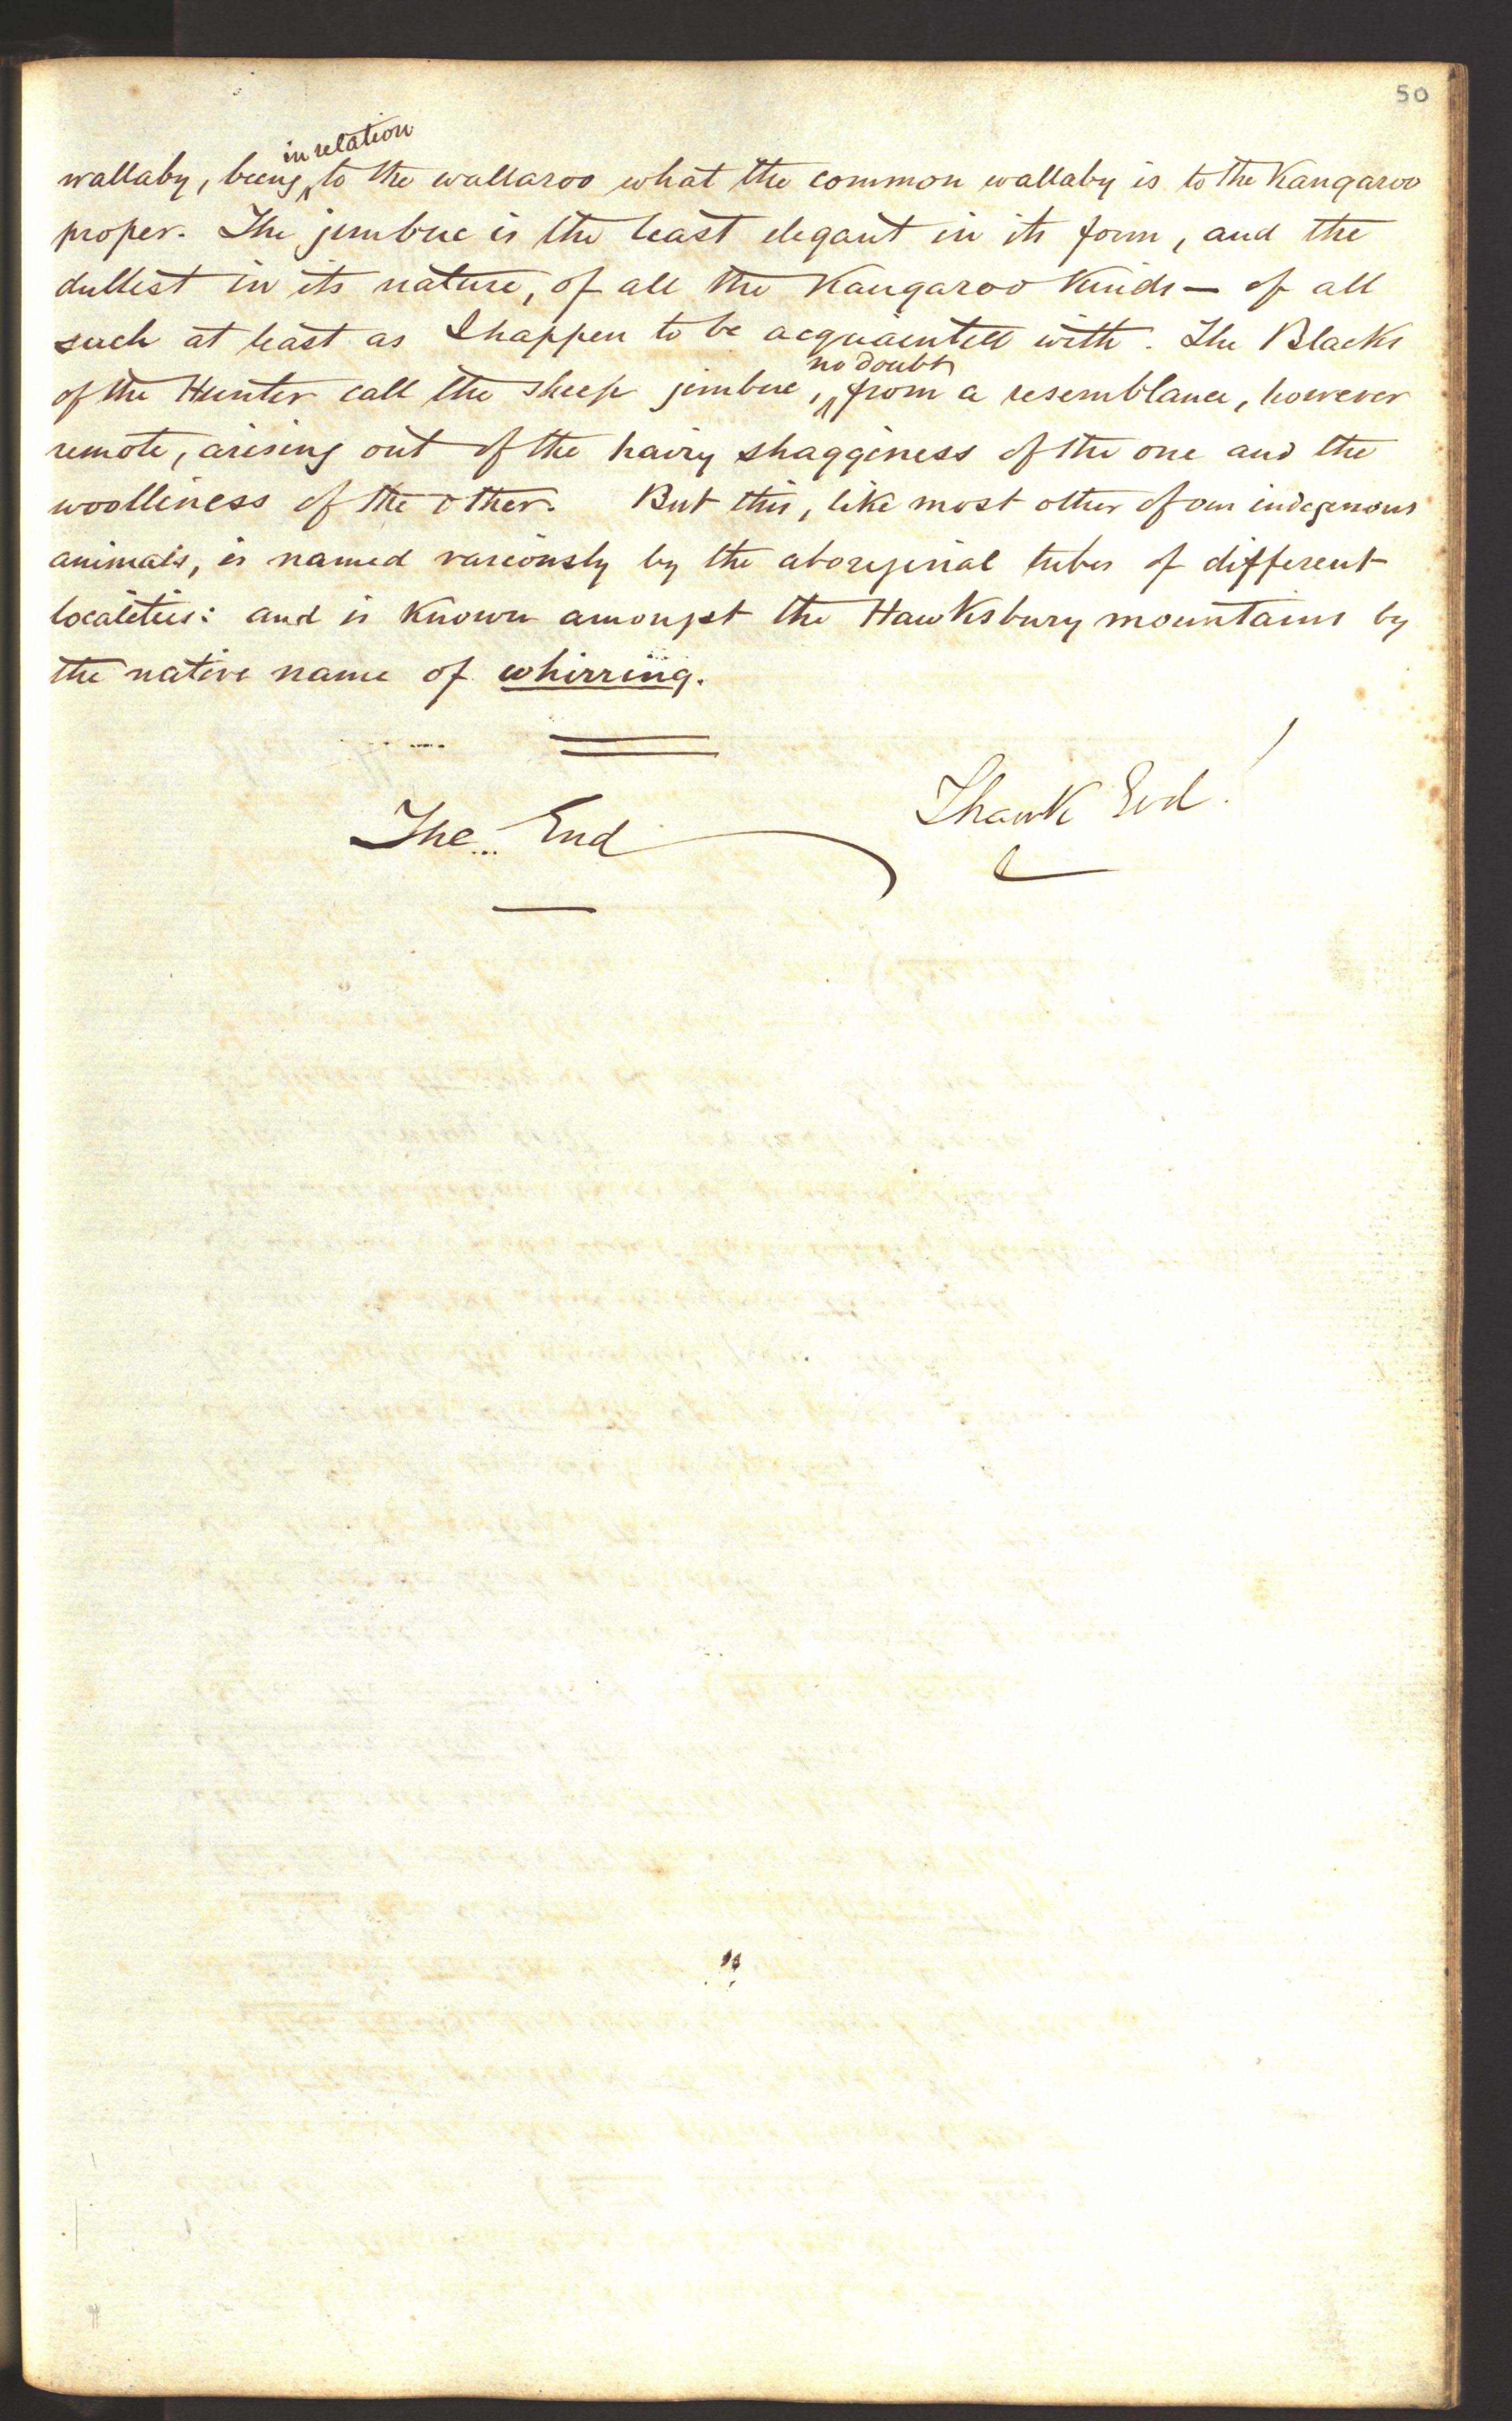 50
in relation
wallaby, being to the wallaroo what the common wallaby is to the Kangaroo
proper. The jimbuc is the least elegant in its form, and the
dullest in its nature, of all the Kangaroo kinds — of all
such at least as I happen to be acquainted with. The Blacks
no doubt
of the Hunter call the sheep jimbuc, from a resemblance, however
remote, arising out of the hairy shagginess of the one and the
woolliness of the other. But this, like most other of our indigenous
animals, is named variously by the aboriginal tribes of different
localities: and is known amongst the Hawksbury mountains by
the native name of whirring.
The End
Thank God!